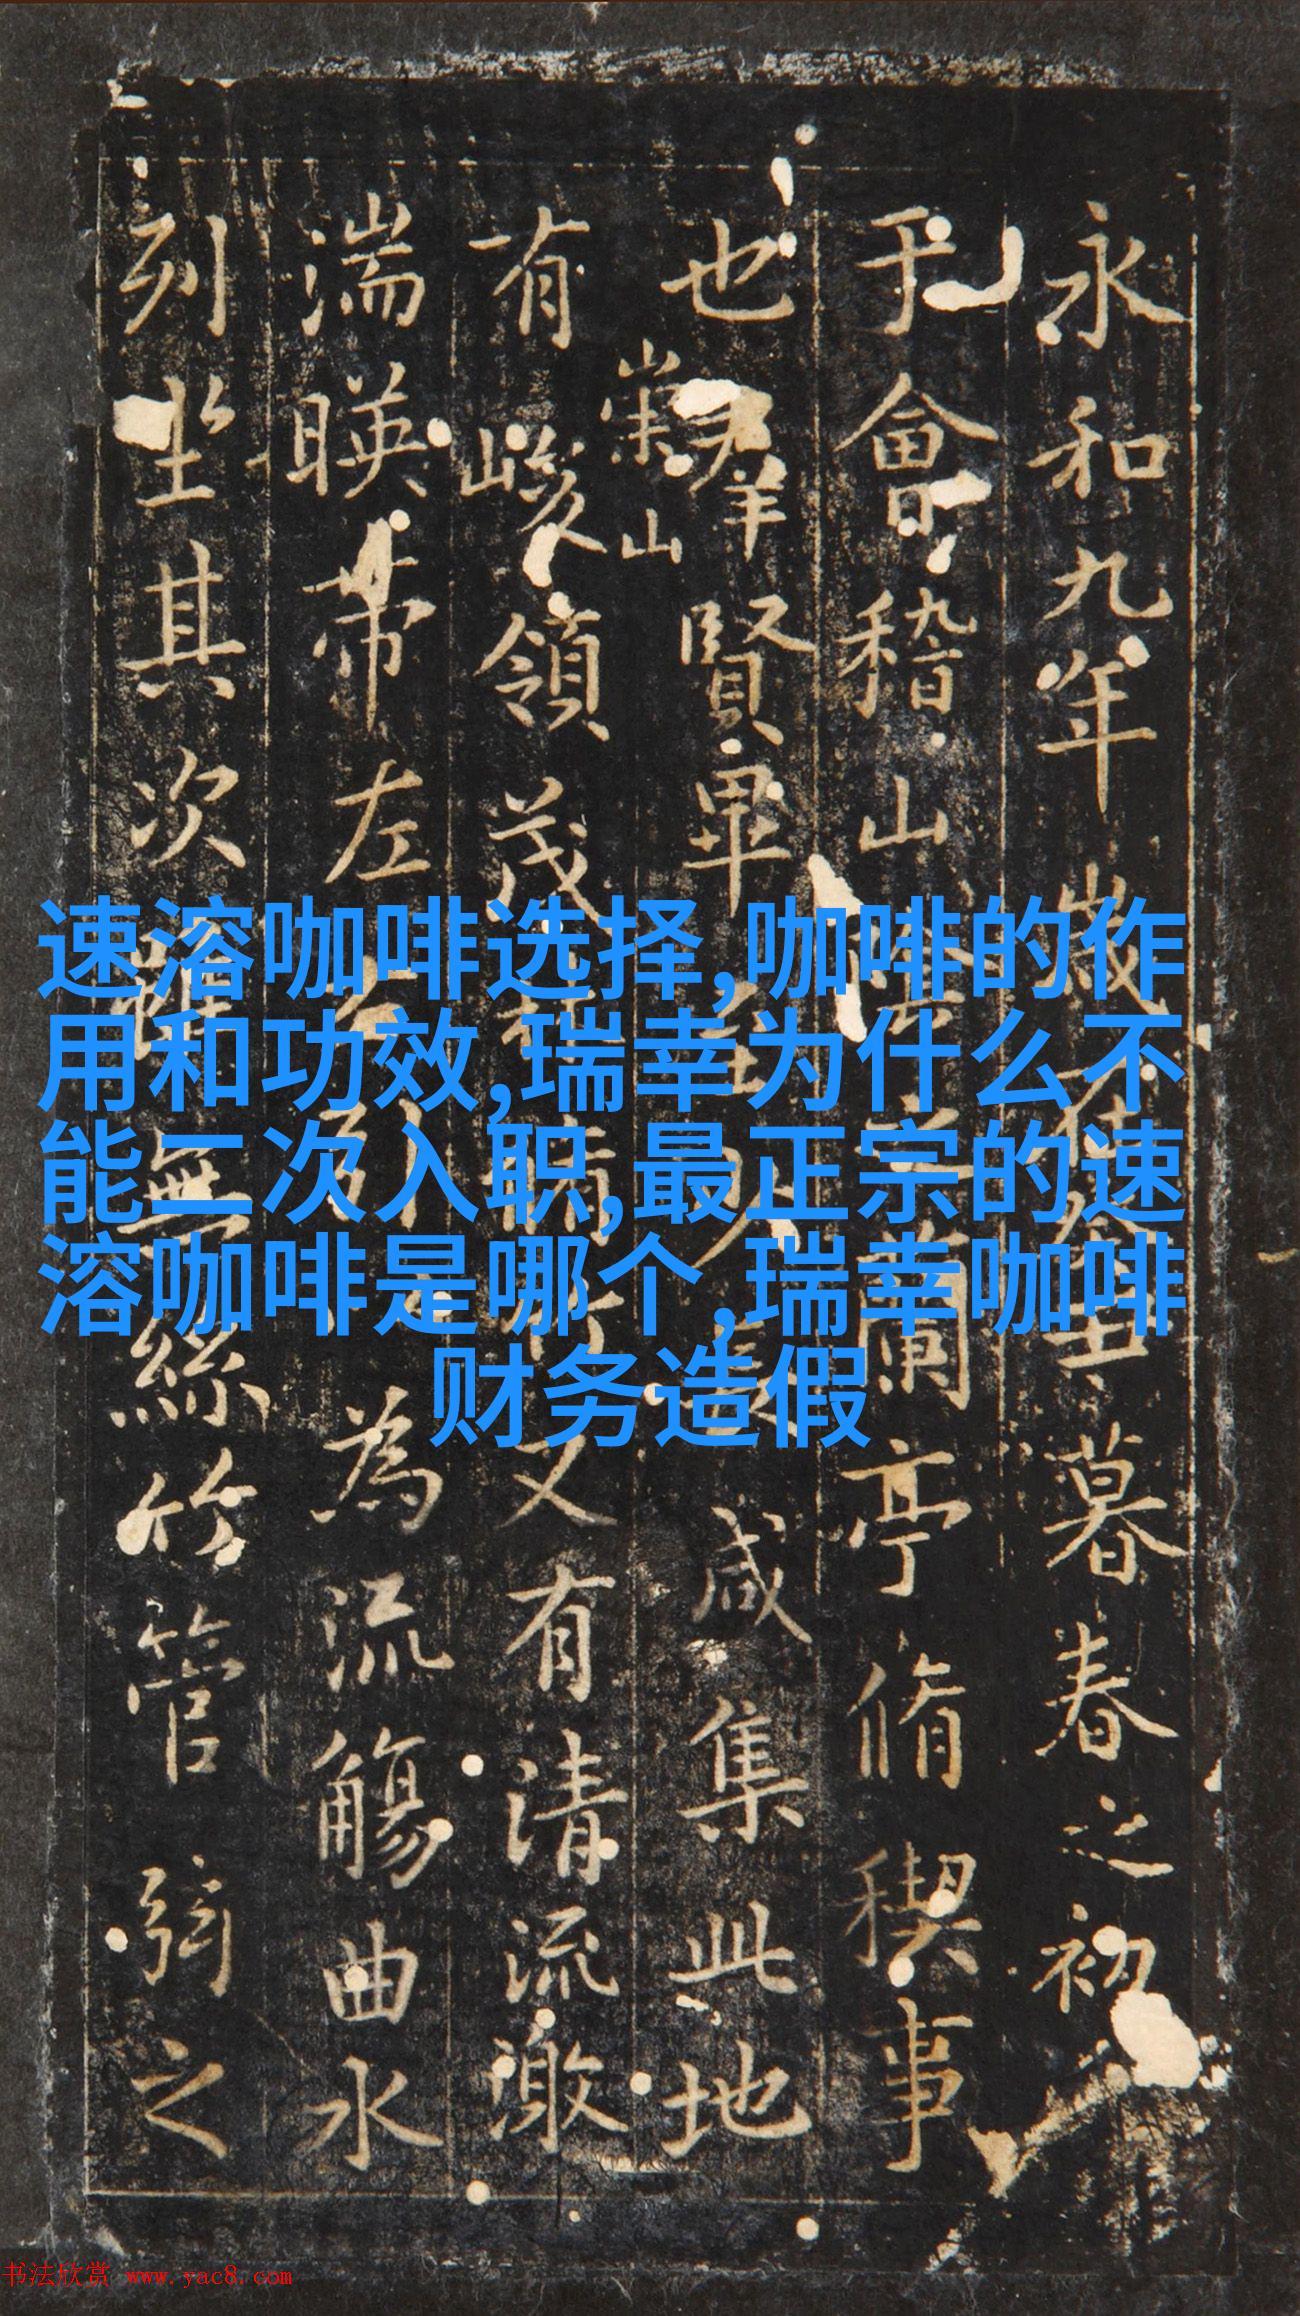 永和九年歲在癸丑暮春之初
于會稽山陰之蘭亭脩禊事
也羣賢畢至少長咸集此地
崇山
有峻領茂林脩竹又有清流激
湍暎帶左右引以為流觴曲水
列坐其次雖無絲竹管弦之
速溶咖啡选择,咖啡的作
用和功效,瑞幸为什么不
能二次入职,最正宗的速
溶咖啡是哪个,瑞幸咖啡
财务造假
书法欣赏 www.yac8.com